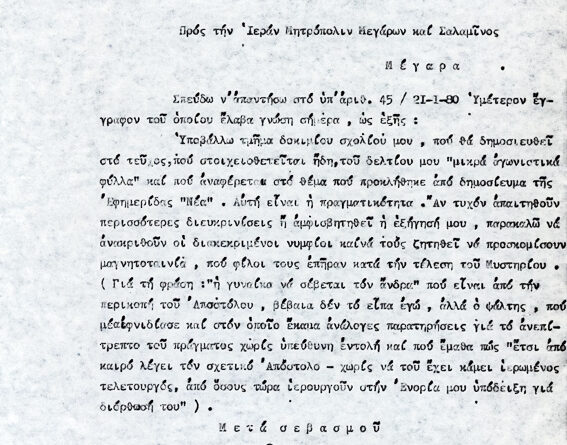 Πρός τήν Ἱεράν Μητρόπολιν Μεγάρων καί Σαλαμῖνος
Μέγαρα .
Σπεύδω ν'ἀπαντήσω στό ὑπ'ἀριθ. 45 / 21-1-80 Ὑμέτερον ἔγ-
γραφον τοῦ ὁποίου ἔλαβα γνώση σήμερα , ὡς ἑξῆς :
Ὑποβάλλω τμῆμα δοκιμίου σχολίου μου , πού θά δημοσιευθεῖ
στό τεῦχος,πού στοιχειοθετεῖται ἤδη,τοῦ δελτίου μου "μικρά ἀγωνιστικά
φύλλα" καί πού ἀναφέρεται στό θέμα πού προκλήθηκε ἀπό δημοσίευμα τῆς
Ἐφημερίδας "Νέα" . Αὐτή εἶναι ἡ πραγματικότητα .Ἄν τυχόν ἀπαιτηθοῦν
περισσότερες διευκρινίσεις ἤ ἀμφισβητηθεῖ ἡ ἐξήγησή μου , παρακαλῶ νά
ἀνακριθοῦν οἱ διακεκριμένοι νυμφίοι καίνά τούς ζητηθεῖ νά προσκομίσουν
μαγνητοταινία , πού φίλοι τους ἐπῆραν κατά τήν τέλεση τοῦ Μυστηρίου .
( Γιά τή φράση :"ἡ γυναίκα νά σέβεται τόν ἄνδρα" πού εἶναι ἀπό τήν
περικοπή τοῦ Ἀποστόλου , βέβαια δέν τό εἶπα ἐγώ , ἀλλά ὁ ψάλτης , πού
μέαἐφνιδίασε καί στόν ὁποῖο ἔκαμα ἀνάλογες παρατηρήσεις γιά τό ἀνεπί-
τρεπτο τοῦ πράγματος χωρίς ὑπεύθυνη ἐντολή καί πού ἔμαθα πώς "ἔτσι ἀπό
καιρό λέγει τόν σχετικό Ἀπόστολο - χωρίς νά τοῦ ἔχει κάμει ἱερωμένος
τελετουργός, ἀπό ὅσους τώρα ἱερουργοῦν στήν Ἐνορία μου ὑπόδειξη γιά
διόρθωσή του" ) .
Μετά σεβασμοῦ